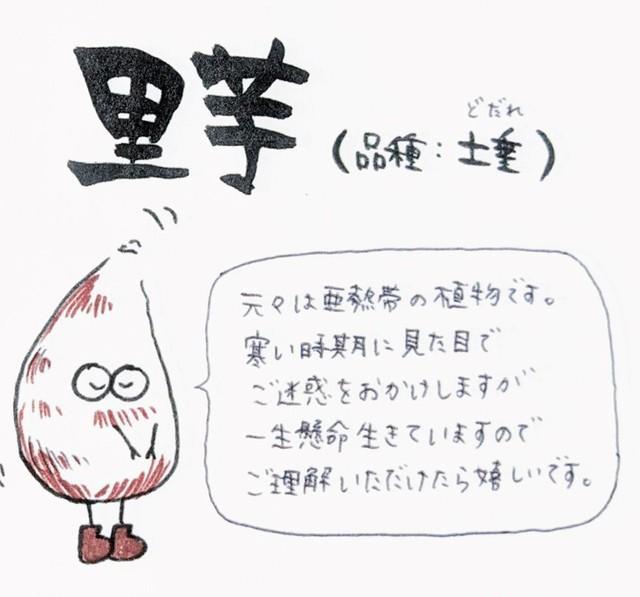 里芋
(品種：土垂)
どだれ
元々は亜熱帯の植物です。
寒い時期に見た目で
ご迷惑をおかけしますが
一生懸命生きていますので
ご理解いただけたら嬉しいです。